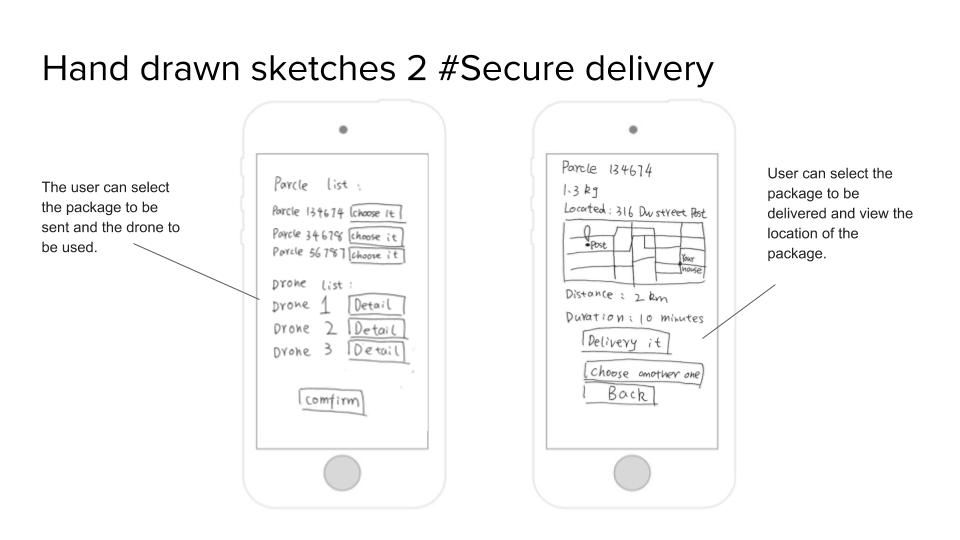 Hand drawn sketches 2 #Secure delivery
The user can select
the package to be
sent and the drone to
be used.
Parcle list :
Parcle 134674 choose it
Parcle 34678 choose it
Parcle 56787 choose it
Drone list :
Drone 1 Detail
Drone 2 Detail
Drone 3 Detail
Comfirm
Parcle 134674
1.3 kg
Located: 316 Dw street Post
Post
Your
house
Distance : 2 km
Duration : 10 minutes
Delivery it
Choose another one
Back
User can select the
package to be
delivered and view the
location of the
package.